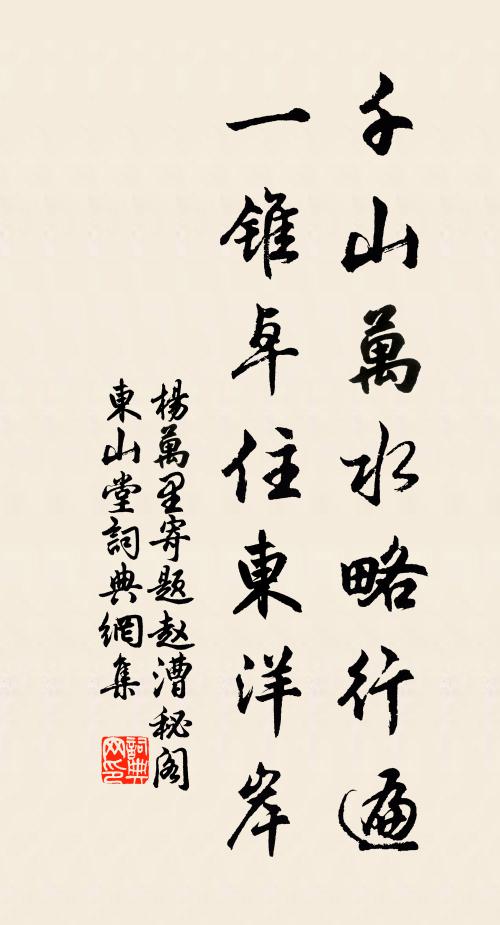 千山萬水略行遍
一錐卓住東洋岸
楊萬里寄題赵漕秘阁
東山堂詞典網集
詞典